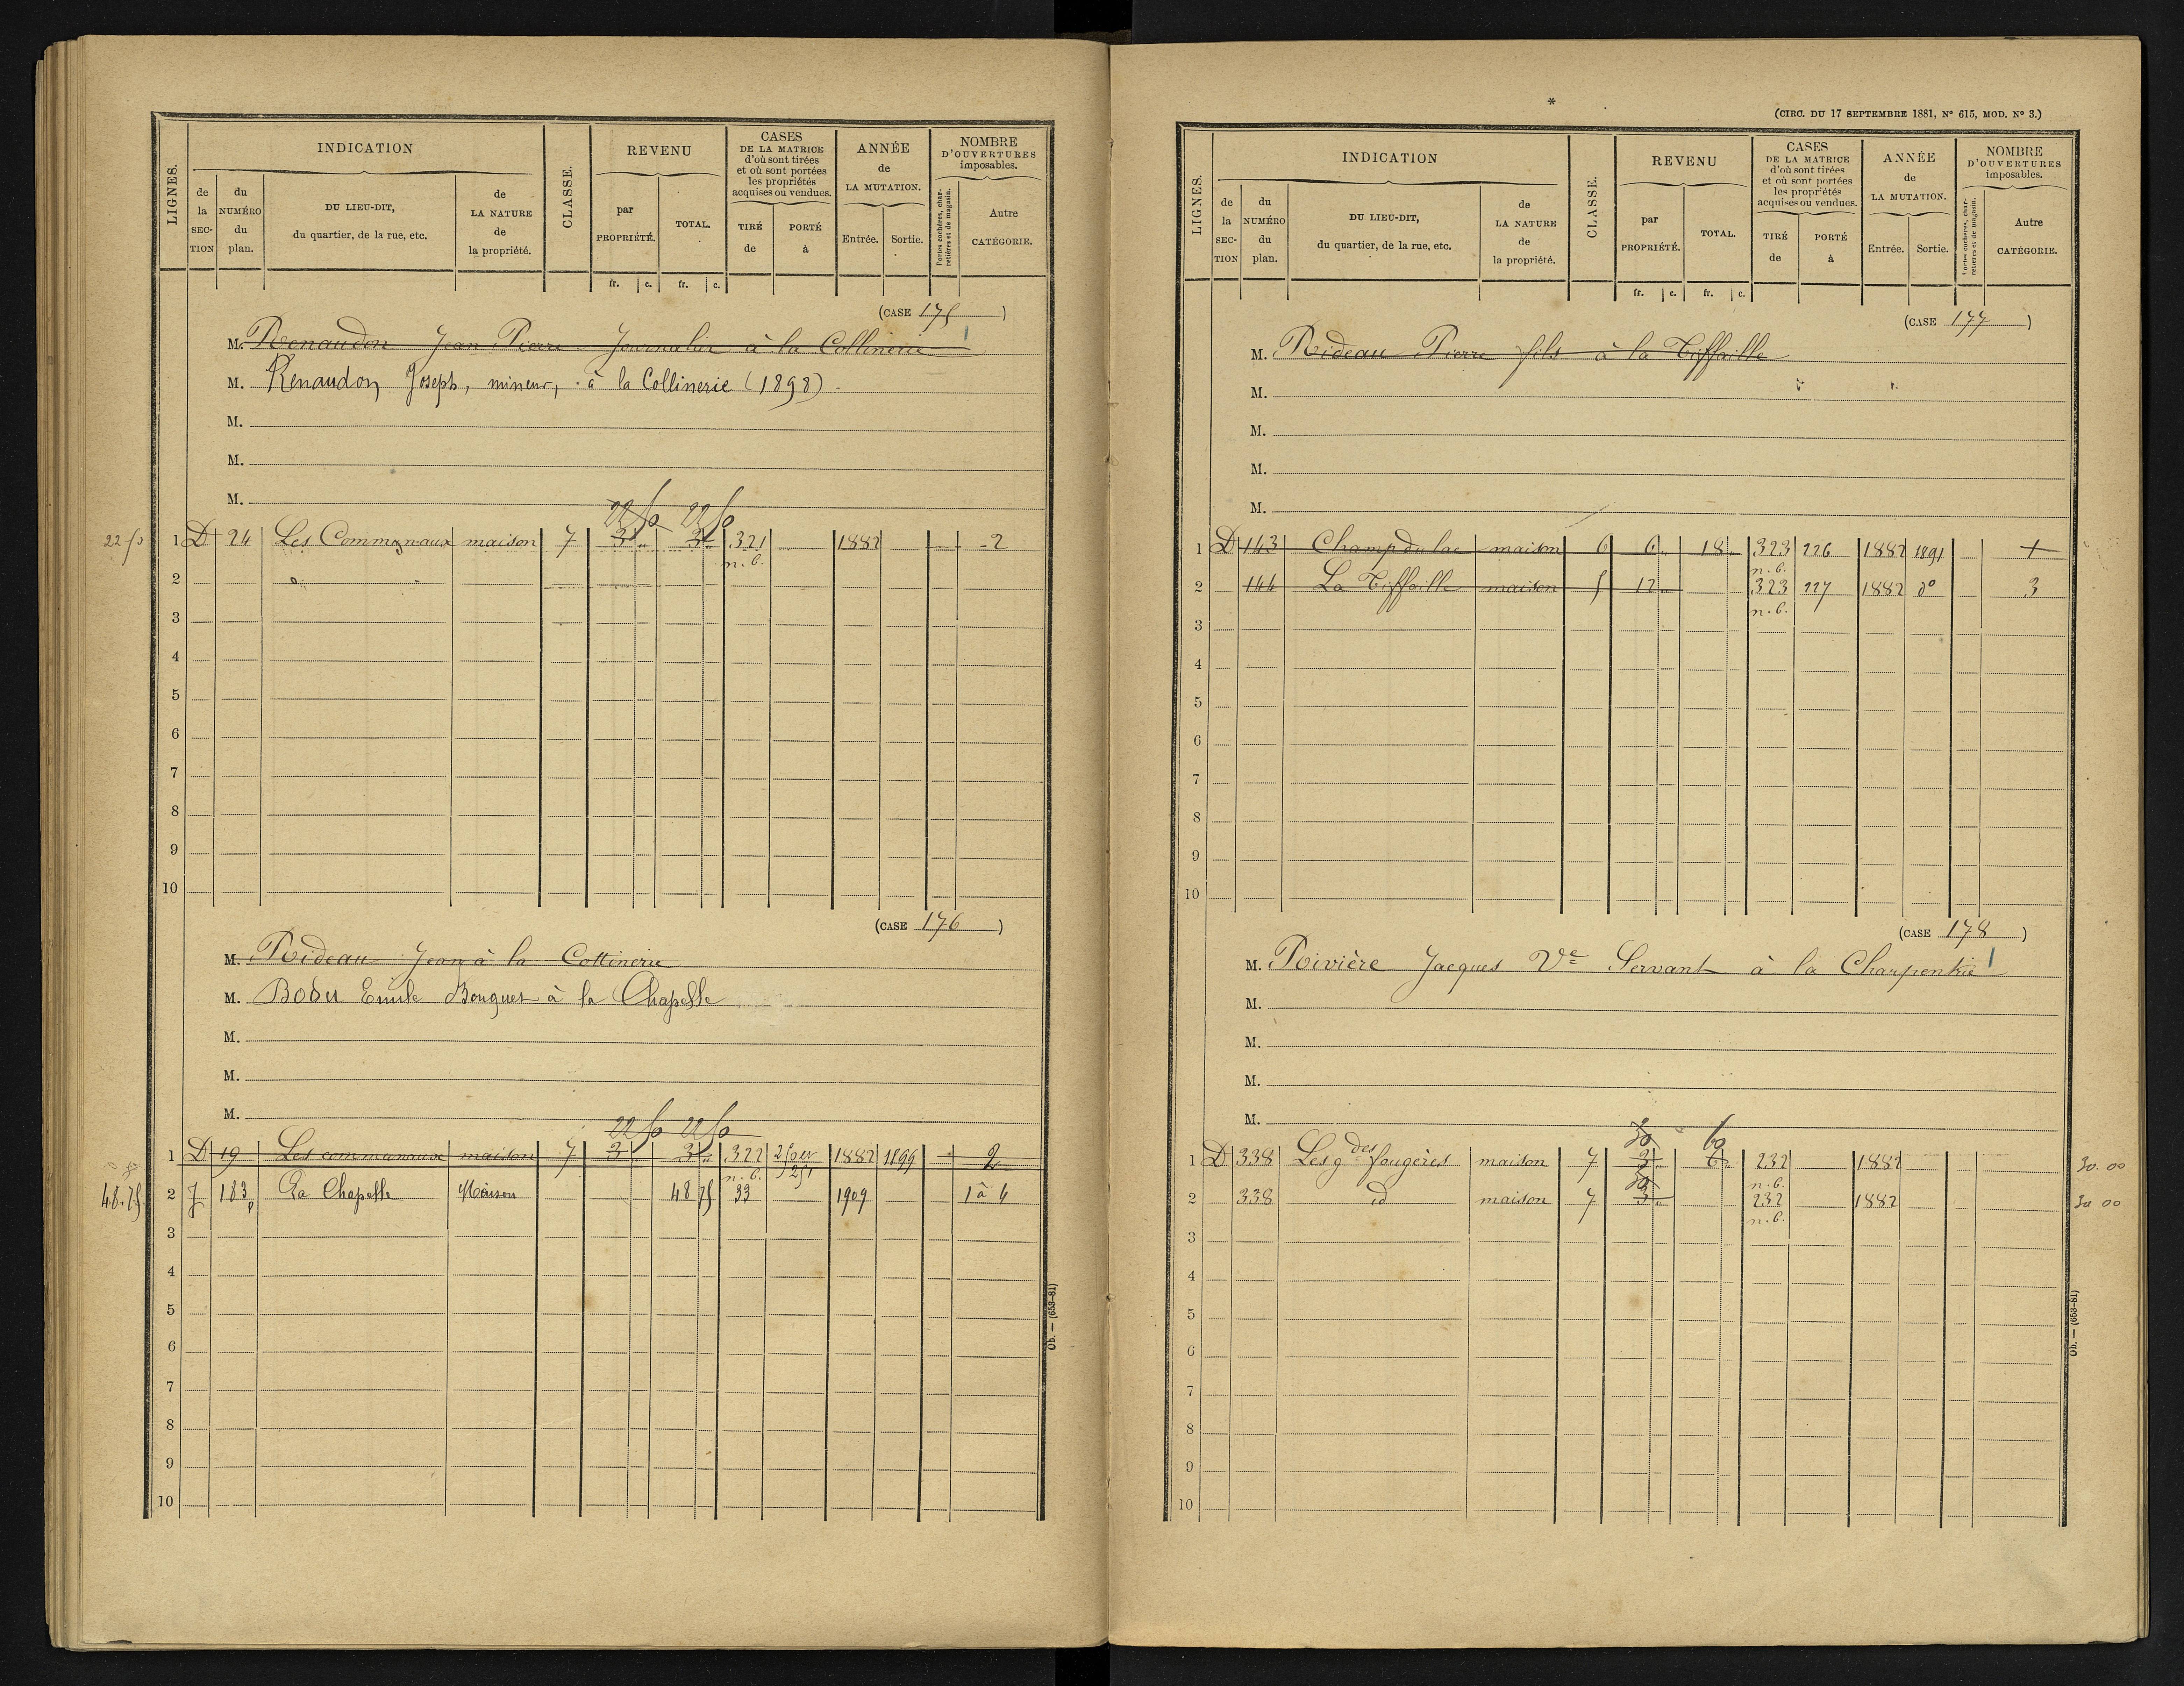 LIGNES.
INDICATION
de la SECTION
du NUMÉRO du plan.
DU LIEU-DIT, du quartier, de la rue, etc.
de LA NATURE de la propriété.
CLASSE.
REVENU
par PROPRIÉTÉ.
TOTAL.
fr. c. fr. c.
CASES DE LA MATRICE d'où sont tirées et où sont portées les propriétés acquises ou vendues.
TIRÉ de
PORTÉ à
ANNÉE de LA MUTATION.
Entrée. Sortie.
NOMBRE D'OUVERTURES imposables.
Portes cochères, charretières et de magasin.
Autre CATÉGORIE.
(CASE 175)
M. Renaudon Jean Pierre Journalier à la Collinerie
M. Renaudon Joseph, mineur, à la Collinerie (1898)
M.
M.
M.
22 50 22 50
22 50 1 D 24 Les Communaux maison 7 3 " 3 " 321 1882 2
n.b.
2
3
4
5
6
7
8
9
10
(CASE 176)
M. Rideau Jean à la Cottinerie
M. Bodu Emile Bouguet à la Chapelle
M.
M.
M.
22 50 22 50
1 D 19 Les communaux maison 7 3 " 3 " 322 1882 1899 2
n.b. 251
48.75 2 J 183p La Chapelle Maison 48 75 33 1909 1 à 4
3
4
5
6
7
8
9
10
Ob. — (653-81)
*
(CIRC. DU 17 SEPTEMBRE 1881, N° 615, MOD. N° 3.)
LIGNES.
INDICATION
de la SECTION
du NUMÉRO du plan.
DU LIEU-DIT, du quartier, de la rue, etc.
de LA NATURE de la propriété.
CLASSE.
REVENU
par PROPRIÉTÉ.
TOTAL.
fr. c. fr. c.
CASES DE LA MATRICE d'où sont tirées et où sont portées les propriétés acquises ou vendues.
TIRÉ de
PORTÉ à
ANNÉE de LA MUTATION.
Entrée. Sortie.
NOMBRE D'OUVERTURES imposables.
Portes cochères, charretières et de magasin.
Autre CATÉGORIE.
(CASE 177)
M. Rideau Pierre fils à la Tiffaille
M.
M.
M.
M.
1 D 143 Champ du lac maison 6 6 " 18 " 323 226 1882 1891 +
n.b.
2 144 La Tiffaille maison 5 12 " 323 227 1882 d° 3
n.b.
3
4
5
6
7
8
9
10
(CASE 178)
M. Rivière Jacques Ve Servant à la Charpentrie
M.
M.
M.
M.
30 60
1 D 338 Les gdes fougères maison 7 3 " 6 " 232 1882 30.00
30 n.b.
2 338 id maison 7 3 " 232 1882 30 00
n.b.
3
4
5
6
7
8
9
10
Ob. — (653-81)